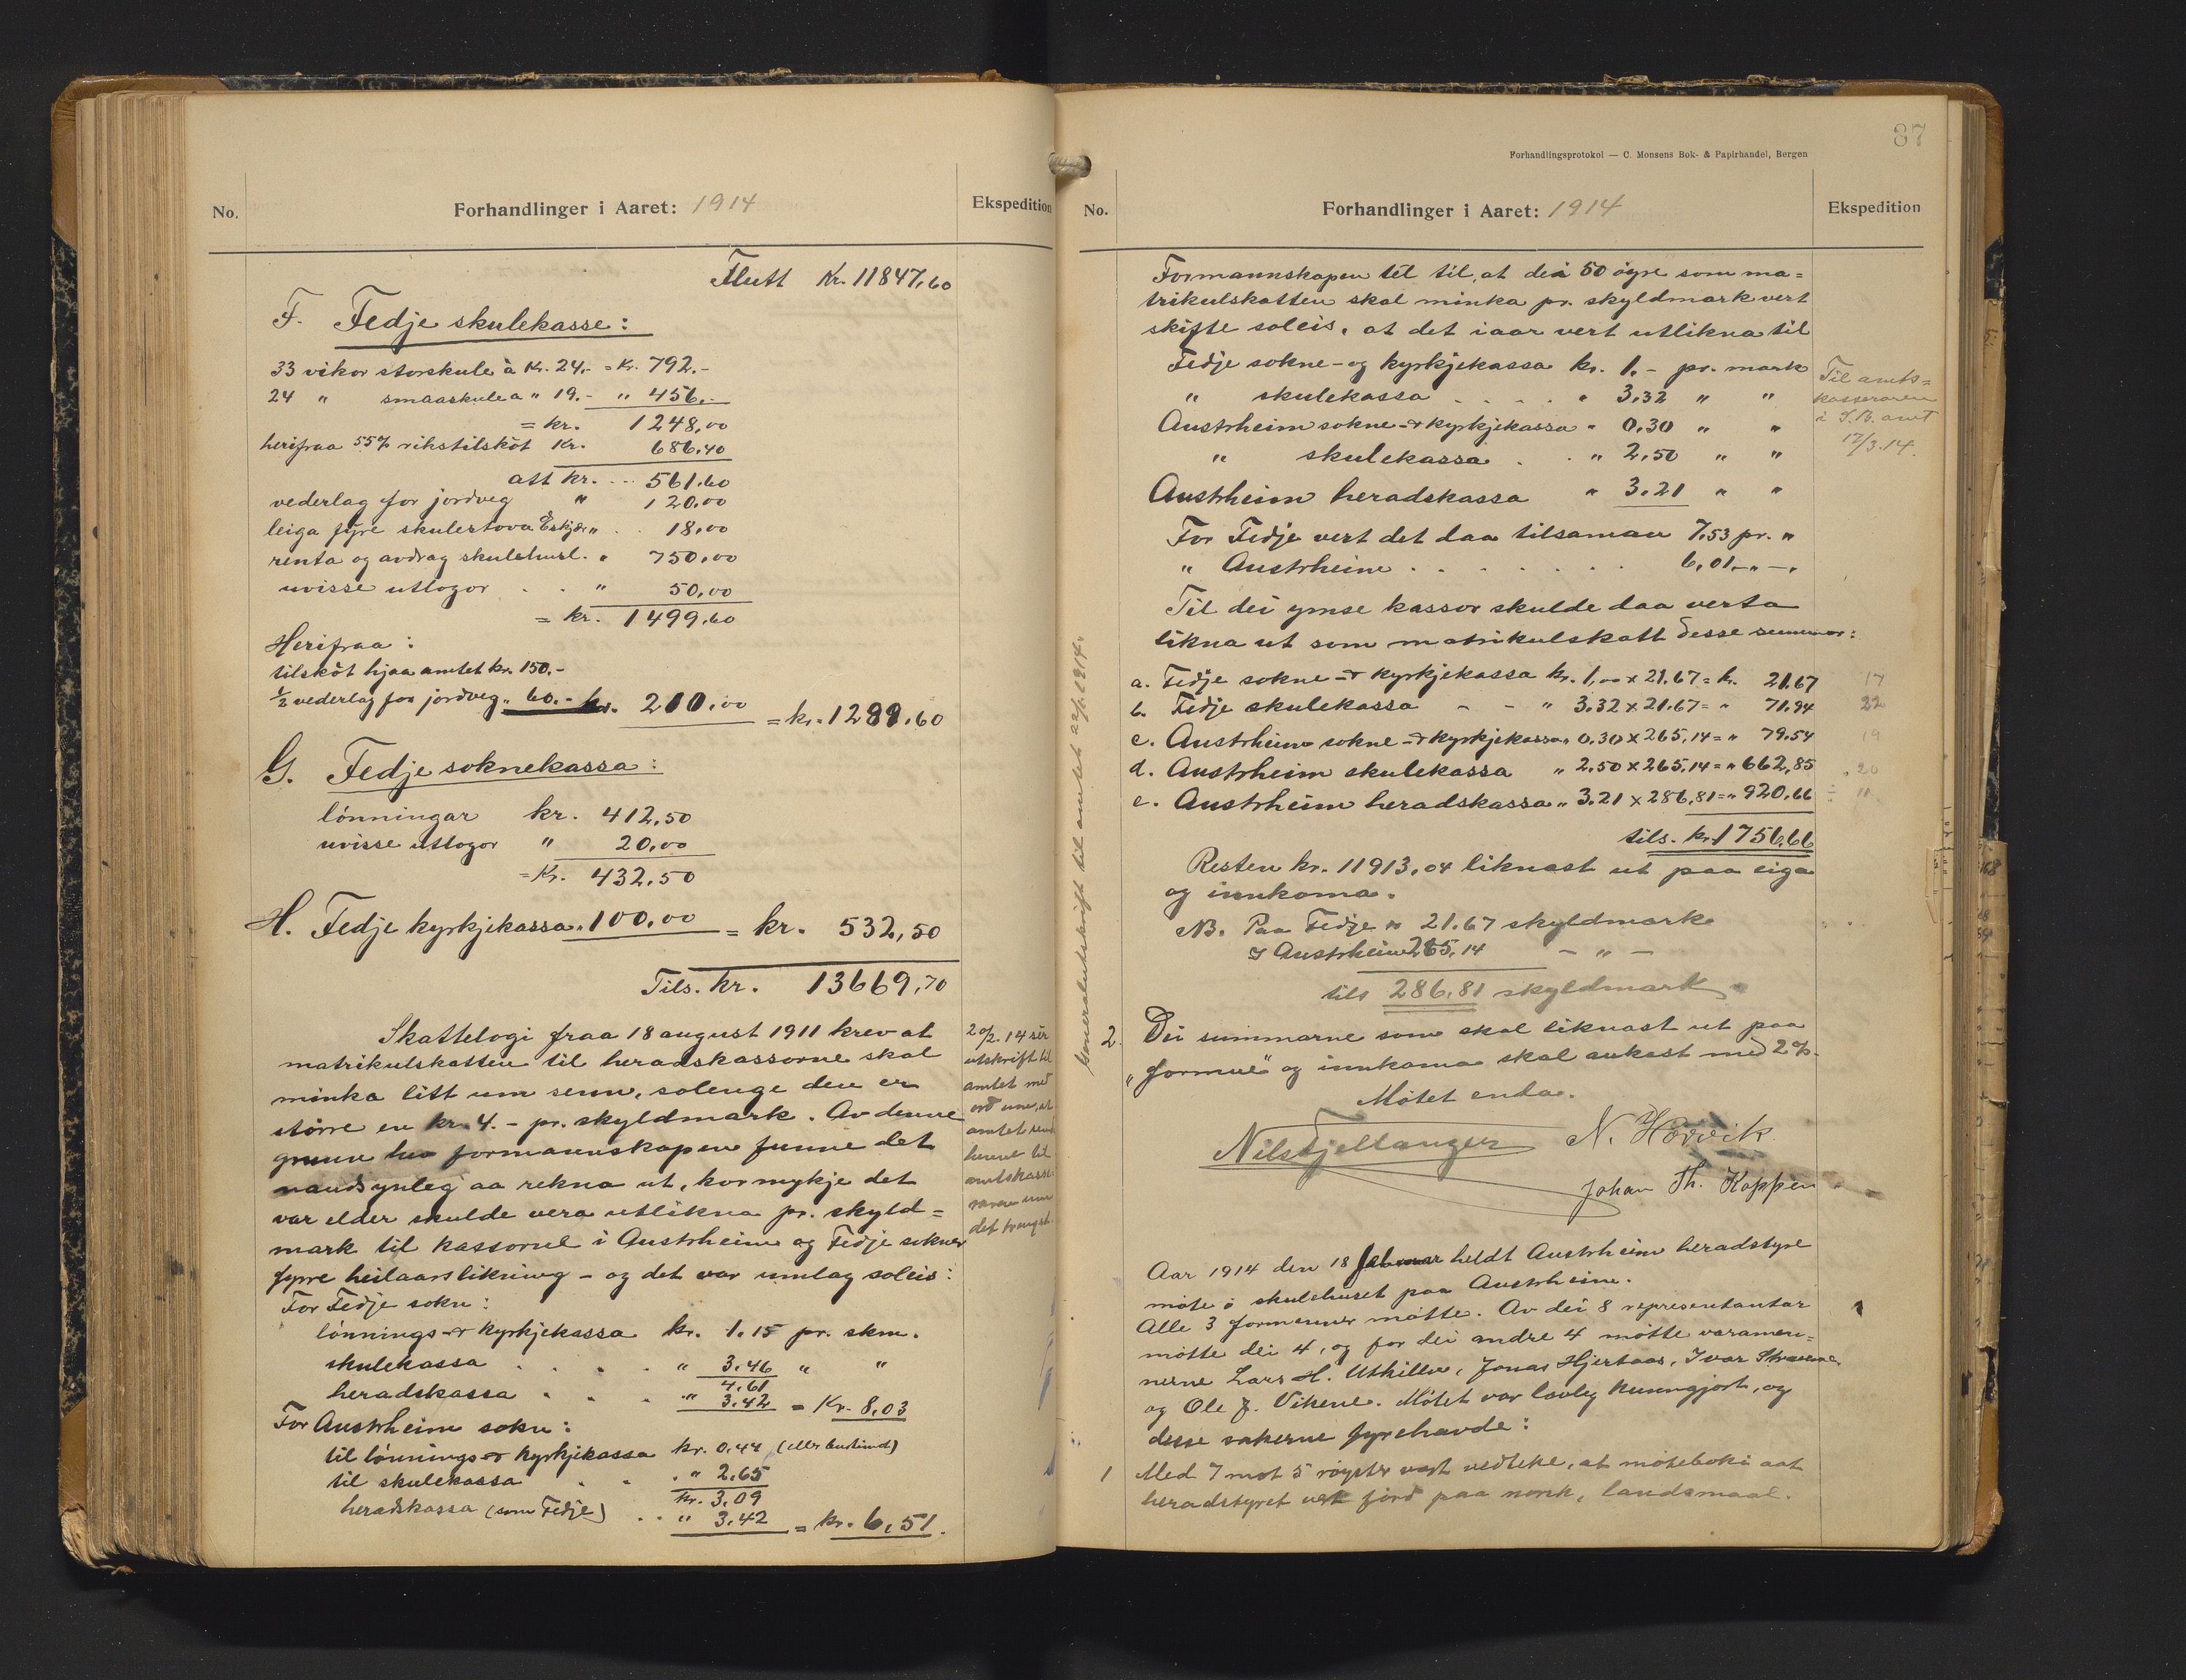 No.
Forhandlinger i Aaret: 1914
Ekspedition
Flutt Kr. 11847,60
F. Fedje skulekasse:
33 vikor storskule à Kr. 24,- = Kr. 792.-
24 " smaaskule a " 19.- " 456.-
= kr. 1248,00
herifraa 55% rikstilsköt Kr. 686.40
att kr. ... 561.60
vederlag for jordveg " 120.00
leiga fyre skulestova Eskjær " . . 18.00
renta og avdrag skulehusl. " 750,00
uvisse utlogor . . " 50,00
= kr. 1499,60
Herifraa:
tilsköt hjaa amtet kr. 150.-
½ vederlag for jordveg " 60.- kr. 210,00 = kr. 1289.60
G. Fedje soknekassa:
lönningar kr. 412,50
uvisse utlogor " 20,00
= Kr. 432,50
H. Fedje kyrkjekassa " 100,00 = kr. 532,50
Tils. kr. 13669,70
Skattelogi fraa 18 august 1911 krev at
matrikulskatten til heradskassorne skal
minka litt um senn, solenge den er
större en kr. 4.- pr. skyldmark. Av denne
grunn hev formannskapen funne det
naudsynleg aa rekna ut, kor mykje det
var elder skulde vera utlikna pr. skyld=
mark til kassorne i Austrheim og Fedje sokner
fyrre heilaarslikning - og det var umlag soleis:
For Fedje sokn:
lönnings- & kyrkjekassa kr. 1.15 pr. skm.
skulekassa . . . . " 3.46 " "
4.61
heradskassa . . . " 3.42 = Kr. 8,03
For Austrheim sokn:
til lönnings- & kyrkjekassa kr. 0.44
til skulekassa . . . " 2.65
kr. 3,09
heradskassa (som Fedje) . . " 3.42 = kr. 6,51.
20/2. 14
utskrift til
amtet med
ord um, at
amtet
amtskasse
det
Forhandlingsprotokol — C. Monsens Bok- & Papirhandel, Bergen
37
No.
Forhandlinger i Aaret: 1914
Ekspedition
Formannskapen tét til, at dei 50 öyre som ma=
trikulskatten skal minka pr. skyldmark vert
skifte soleis, at det i aar vert utlikna til
Fedje sokne- og kyrkjekassa kr. 1.- pr. mark
" skulekassa . . . . " 3,32 " "
Austrheim sokne- & kyrkjekassa " 0,30 " "
" skulekassa . . " 2,50 " "
Austrheim heradskassa " 3.21 " "
For Fedje vert det daa tilsaman 7,53 pr. "
" Austrheim . . . . . . . 6,01 - " -
Til dei ymse kassor skulde daa verta
likna ut som matrikulskatt desse summar:
a. Fedje sokne- & kyrkjekassa kr. 1,00 x 21.67 = kr. 21.67
b. Fedje skulekassa - - " 3.32 x 21.67 = " 71.94
c. Austrheim sokne- & kyrkjekassa " 0,30 x 265,14 = " 79.54
d. Austrheim skulekassa " 2,50 x 265,14 = " 662,85
e. Austrheim heradskassa " 3.21 x 286,81 = " 920,66
tils. kr. 1756,66
Resten kr. 11913,04 liknast ut paa eiga
og innkoma.
NB. Paa Fedje er 21.67 skyldmark
I Austrheim 265,14 - " -
tils 286,81 skyldmark
2. Dei summarne som skal liknast ut paa
"formue" og innkoma skal aukast med 2%.
Mötet enda.
Nils Kjeltanger N. Hovvik
Johan Th. Koppen
Aar 1914 den 18 februar heldt Austrheim heradstyre
möte i skulehuset paa Austrheim.
Alle 3 formenner mötte. Av dei 8 representantar
mötte dei 4, og for dei andre 4 mötte varamen=
nerne Lars H. Utkilen, Jonas Hjertaas, Ivar
og Ole J. Vikene. Mötet var lovleg kunngjort, og
desse sakerne fyrehavde:
1 Med 7 mot 5 röyster vart vedteke, at möteboki aat
heradstyret vert förd paa norsk, landsmaal.
Til amts=
kasseraren
i S.B. amt
17/3.14.
17
22
19
20
11
Generalutskrift til amtet 22/2 1914.